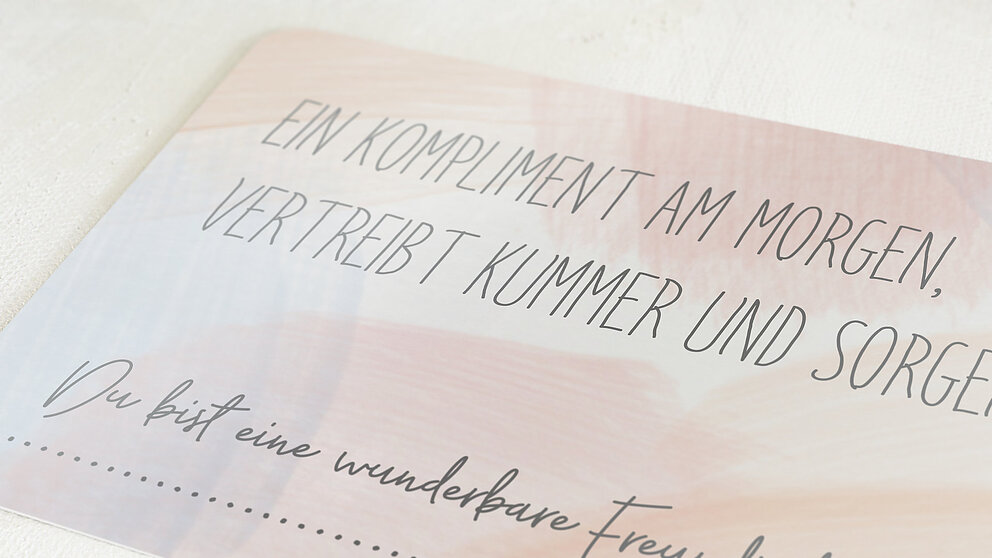 EIN KOMPLIMENT AM MORGEN,
VERTREIBT KUMMER UND
Du bist eine wunderbare